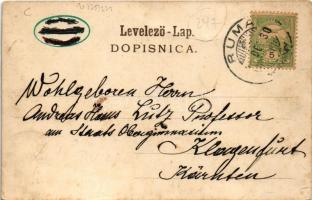 Levelező-Lap.
DOPISNICA.
RUMA
5
Wohlgeboren Herrn
Andreas Hans Lutz Professor
am Staats Obergymnasium
Klagenfurt
Kärnten